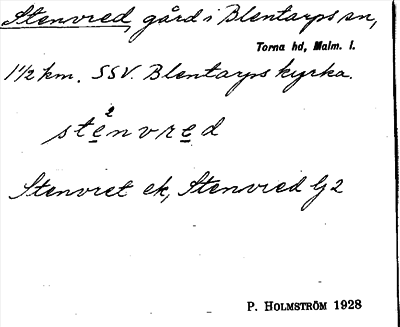 Stenvred, gård i Blentarps sn,
Torna hd, Malm. l.
1 1/2 km. SSV. Blentarps kyrka.
ste²nvred
Stenvret ek, Stenvred G 2
P. HOLMSTRÖM 1928